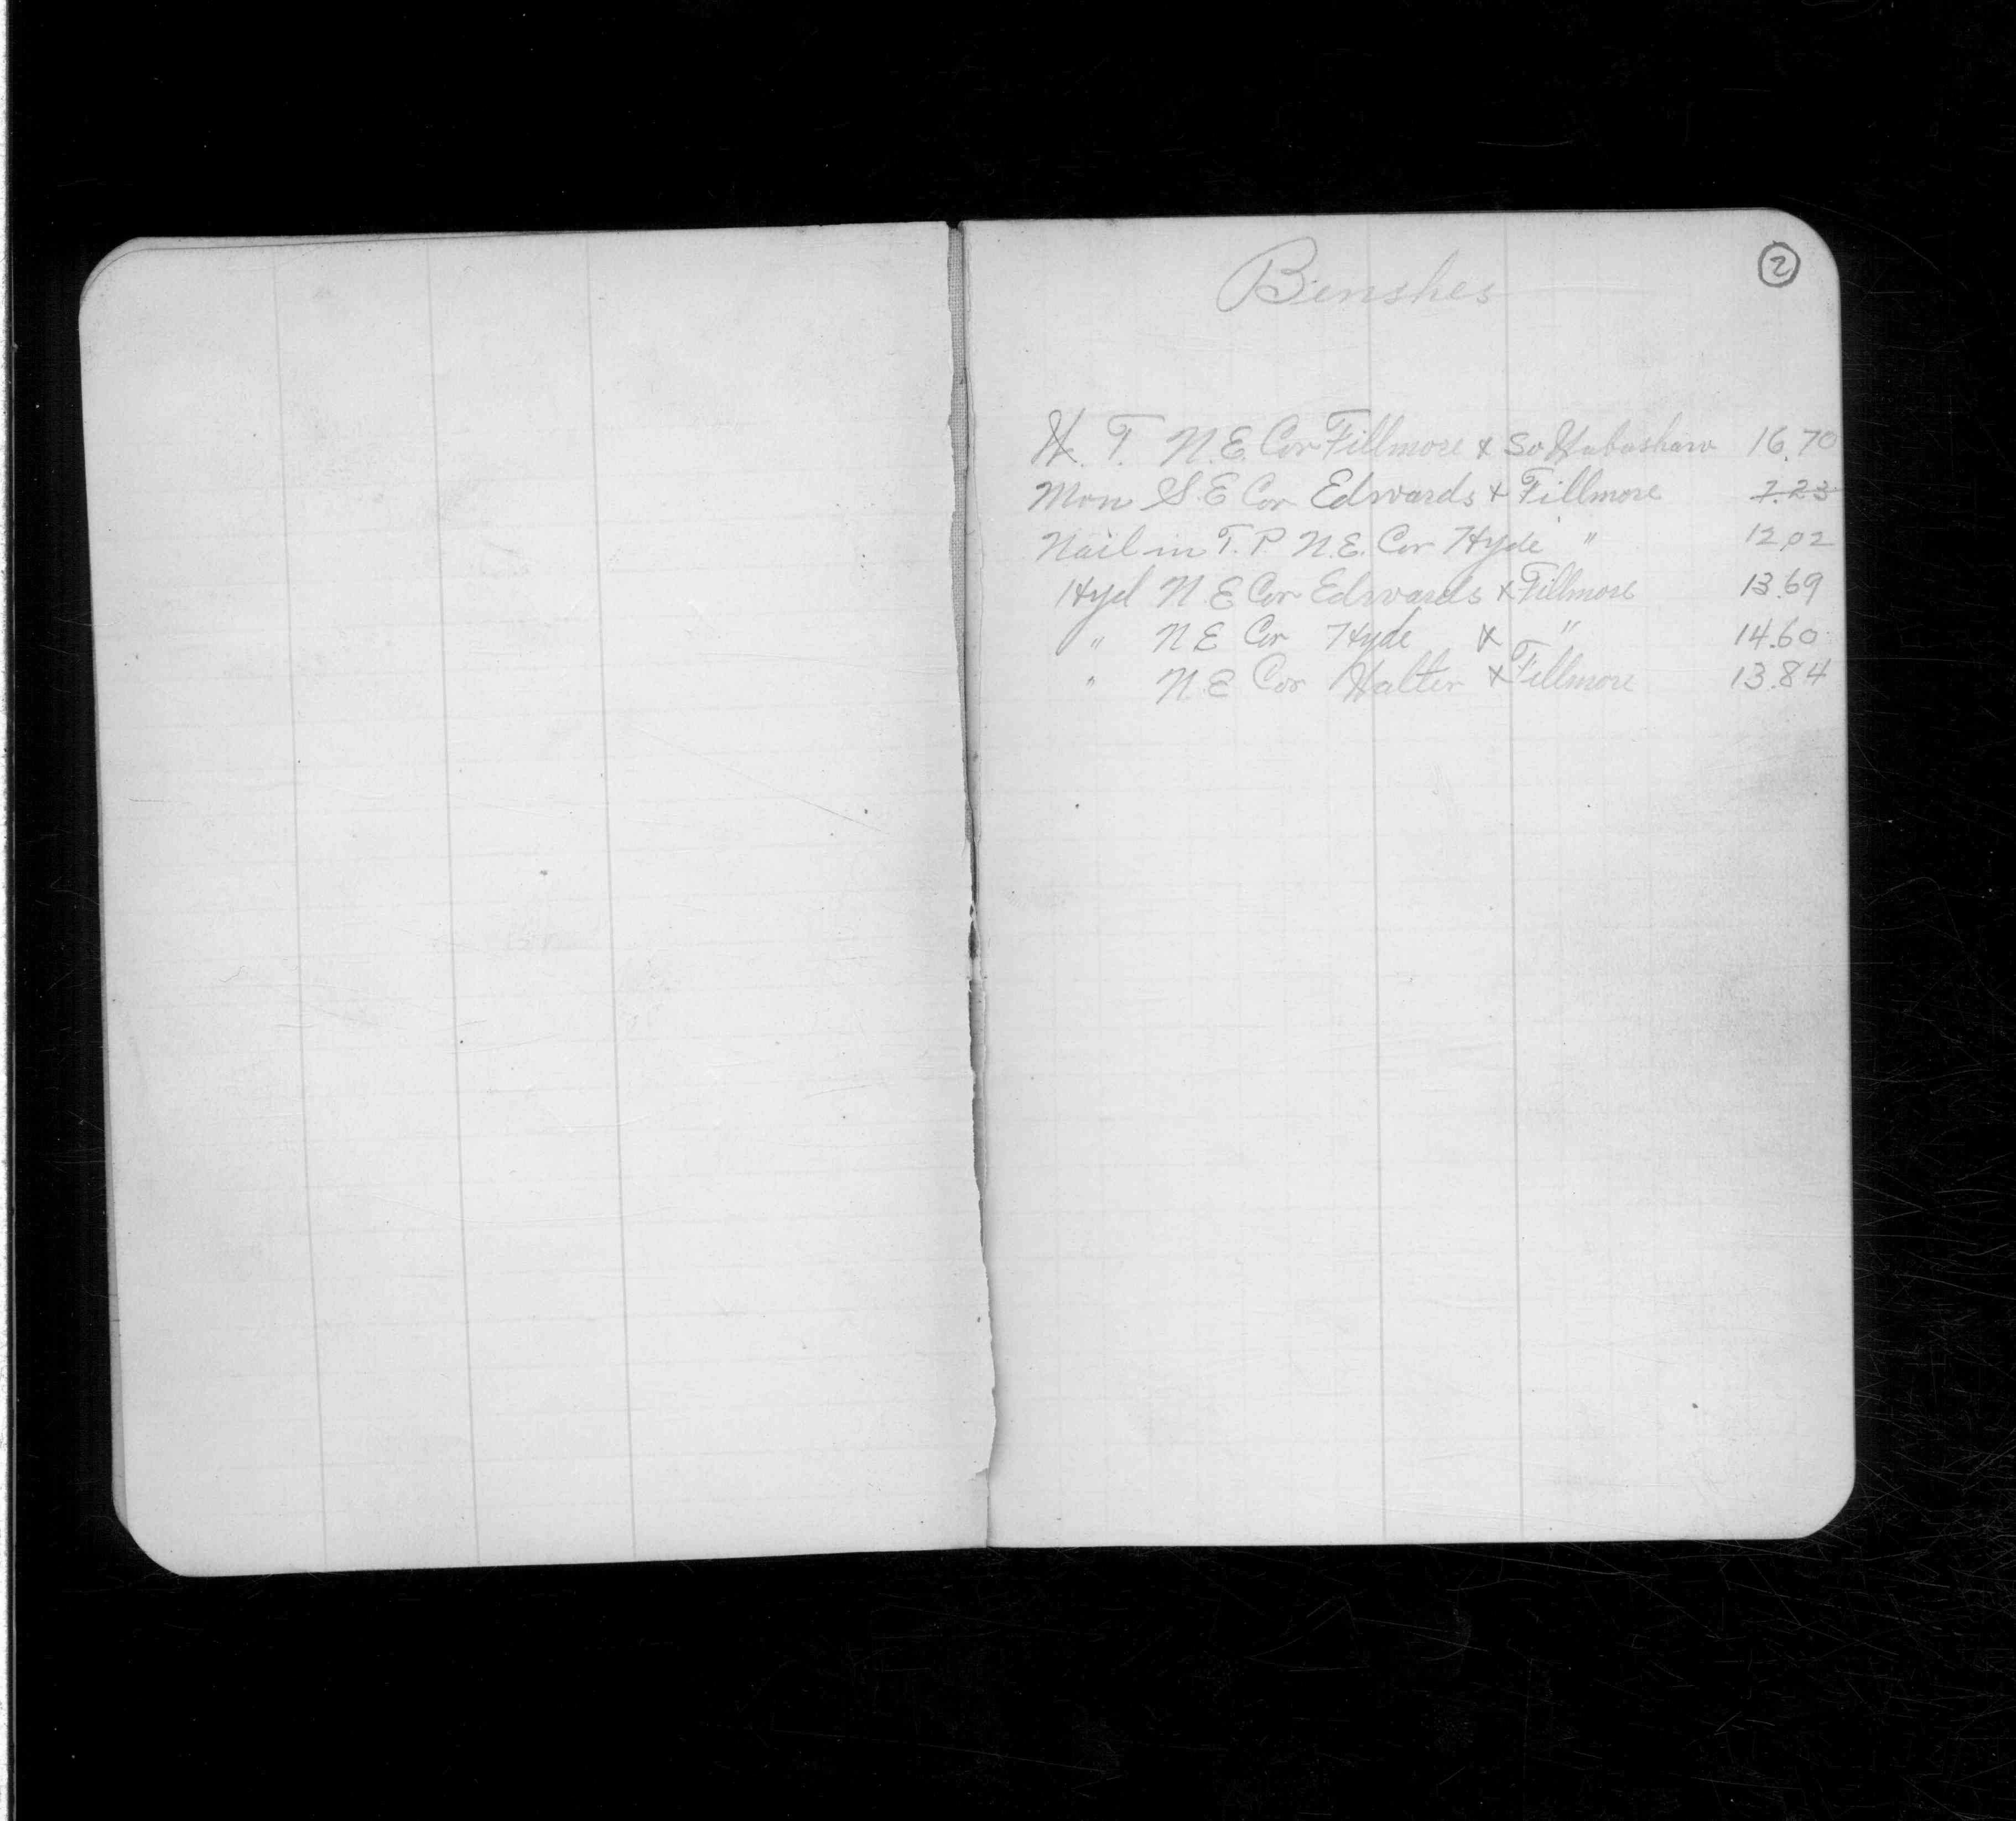 2
Benshes
W. T. N.E. Cor Fillmore & So Wabasha 16.70
Mon S.E Cor Edwards & Fillmore 7.23
Nail in T.P N.E. Cor Hyde " 12.02
Hyd N E Cor Edwards & Fillmore 13.69
" N E Cor Hyde & " 14.60
" N.E Cor Walter & Fillmore 13.84